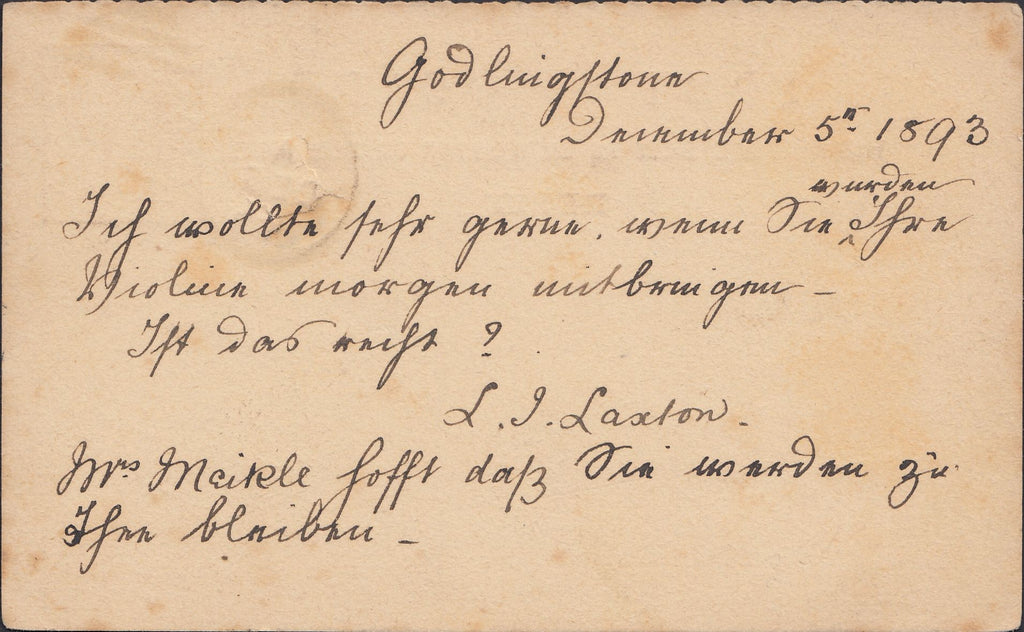 Godlingstone
December 5n 1893
wurden
Ich wollte sehr gerne, wenn Sie ‸ Ihre
Violine morgen mitbringen –
Ist das recht ?
L. J. Laxton.
Mrs Meikle hofft daß Sie werden zu
Thee bleiben –